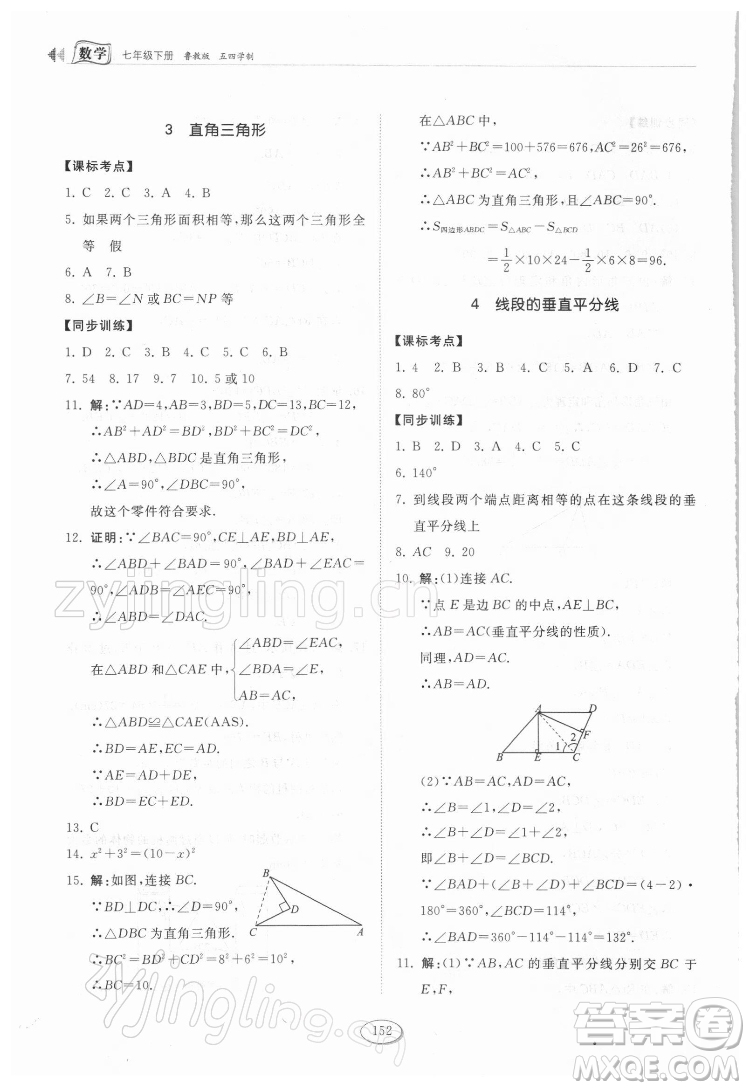 数学 七年级下册 鲁教版 五四学制
3 直角三角形
【课标考点】
1. C 2. C 3. A 4. B
5. 如果两个三角形面积相等,那么这两个三角形全
等 假
6. A 7. B
8. ∠B=∠N或BC=NP等
【同步训练】
1. D 2. C 3. A 4. C 5. C 6. B
7. 54 8. 17 9. 7 10. 5或10
11. 解:∵AD=4,AB=3,BD=5,DC=13,BC=12,
∴AB²+AD²=BD²,BD²+BC²=DC²,
∴△ABD,△BDC是直角三角形,
∴∠A=90°,∠DBC=90°,
故这个零件符合要求.
12. 证明:∵∠BAC=90°,CE⊥AE,BD⊥AE,
∴∠ABD+∠BAD=90°,∠BAD+∠DAC=
90°,∠ADB=∠AEC=90°,
∴∠ABD=∠DAC.
在△ABD和△CAE中,
∠ABD=∠EAC,
∠BDA=∠E,
AB=AC,
∴△ABD≌△CAE(AAS).
∴BD=AE,EC=AD.
∵AE=AD+DE,
∴BD=EC+ED.
13. C
14. x²+3²=(10-x)²
15. 解:如图,连接BC.
∵BD⊥DC,∴∠D=90°,
∴△DBC为直角三角形.
∴BC²=BD²+CD²=8²+6²=10²,
∴BC=10.
B
D
C
A
在△ABC中,
∵AB²+BC²=100+576=676,AC²=26²=676,
∴AB²+BC²=AC²,
∴△ABC为直角三角形,∠ABC=90°.
∴S四边形ABDC=S△ABC-S△BCD
=1/2×10×24-1/2×6×8=96.
4 线段的垂直平分线
【课标考点】
1. 4 2. B 3. B 4. B 5. A 6. D 7. C
8. 80°
【同步训练】
1. B 2. D 3. A 4. C 5. C
6. 140°
7. 到线段两个端点距离相等的点在这条线段的垂
直平分线上
8. AC 9. 20
10. 解:(1)连接AC.
∵点E是边BC的中点,AE⊥BC,
∴AB=AC(垂直平分线的性质).
同理,AD=AC,
∴AB=AD.
A D
F
2
1
B E C
(2)∵AB=AC,AD=AC,
∴∠B=∠1,∠D=∠2,
∴∠B+∠D=∠1+∠2,
即∠B+∠D=∠BCD.
∵∠BAD+(∠B+∠D)+∠BCD=(4-2)·
180°=360°,∠BAD=114°,
∴∠BCD=360°-114°-114°=132°.
11. 解:(1)∵AB,AC的垂直平分线分别交BC于
E,F,
152
zyjingling.com
作业精灵
答案圈
MXQE.COM